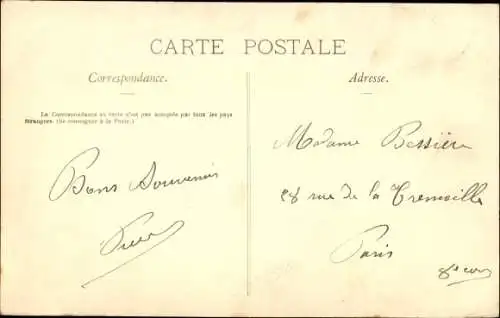 CARTE POSTALE
Correspondance.
Adresse.
La Correspondance au recto n'est pas acceptée par tous les pays
étrangers. (Se renseigner à la Poste.)
Madame Bessière
28 rue de la Tremoille
Paris
8e
Bons Souvenirs